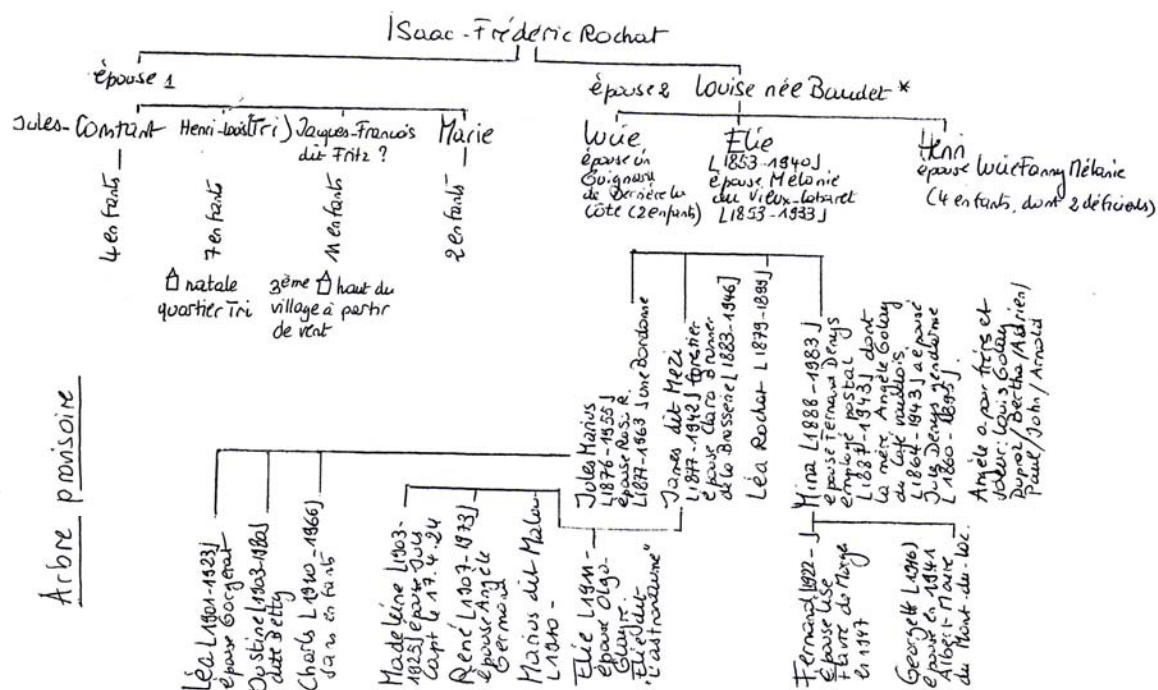 Isaac-Frédéric Rochat
épouse 1
épouse 2 Louise née Baudet *
Jules-Constant
4 enfants
Henri-Louis (Tri)
7 enfants
natale
quartier Tri
Jaques-Francois
dit Fritz ?
11 enfants
3ème haut du
village à partir
de vent
Marie
2 enfants
Lucie
épouse un
Guignard
de Derrière la
Côte (2 enfants)
Elie
[1853-1940]
épouse Mélanie
du Vieux-Cabaret
[1853-1933]
Henri
épouse Lucie Fanny Mélanie
(4 enfants, dont 2 déficients)
Arbre provisoire
Jules Marius
[1876-1955]
épouse Rosa R.
[1877-1963] une Bardane
James dit Mézi
[1877-1942] forestier
épouse Clara Brunner
de la Brasserie [1883-1946]
Léa Rochat [1879-1899]
Mina [1888-1983]
épouse Fernand Denys
employé postal
[1887-1943] dont
la mère Angèle Golay
du Café vaudois
[1864-1943] a épousé
Jules Denys gendarme
[1860-1895].
Angèle a pour frères et
soeur: Louis Golay
Dupraz / Bertha / Adrien /
Paul / John / Arnold
Léa [1901-1923]
épouse Gorgerat
Justine [1903-1980]
dite Betty
Charles [1910-1966]
sans enfants
Madeleine [1903-
1925] épouse Jules
Capt le 17.4.24
René [1907-1973]
épouse Angèle
Germond
Marius dit Malou
[1910-
Elie [1911-
épouse Olga
Glayre.
Elie dit
"l'astronome"
Fernand [1922- ]
épouse Lise
Havre de Morges
en 1947
Georgette [1916]
épouse en 1941
Albert Maire
du Mont-du-Lac.